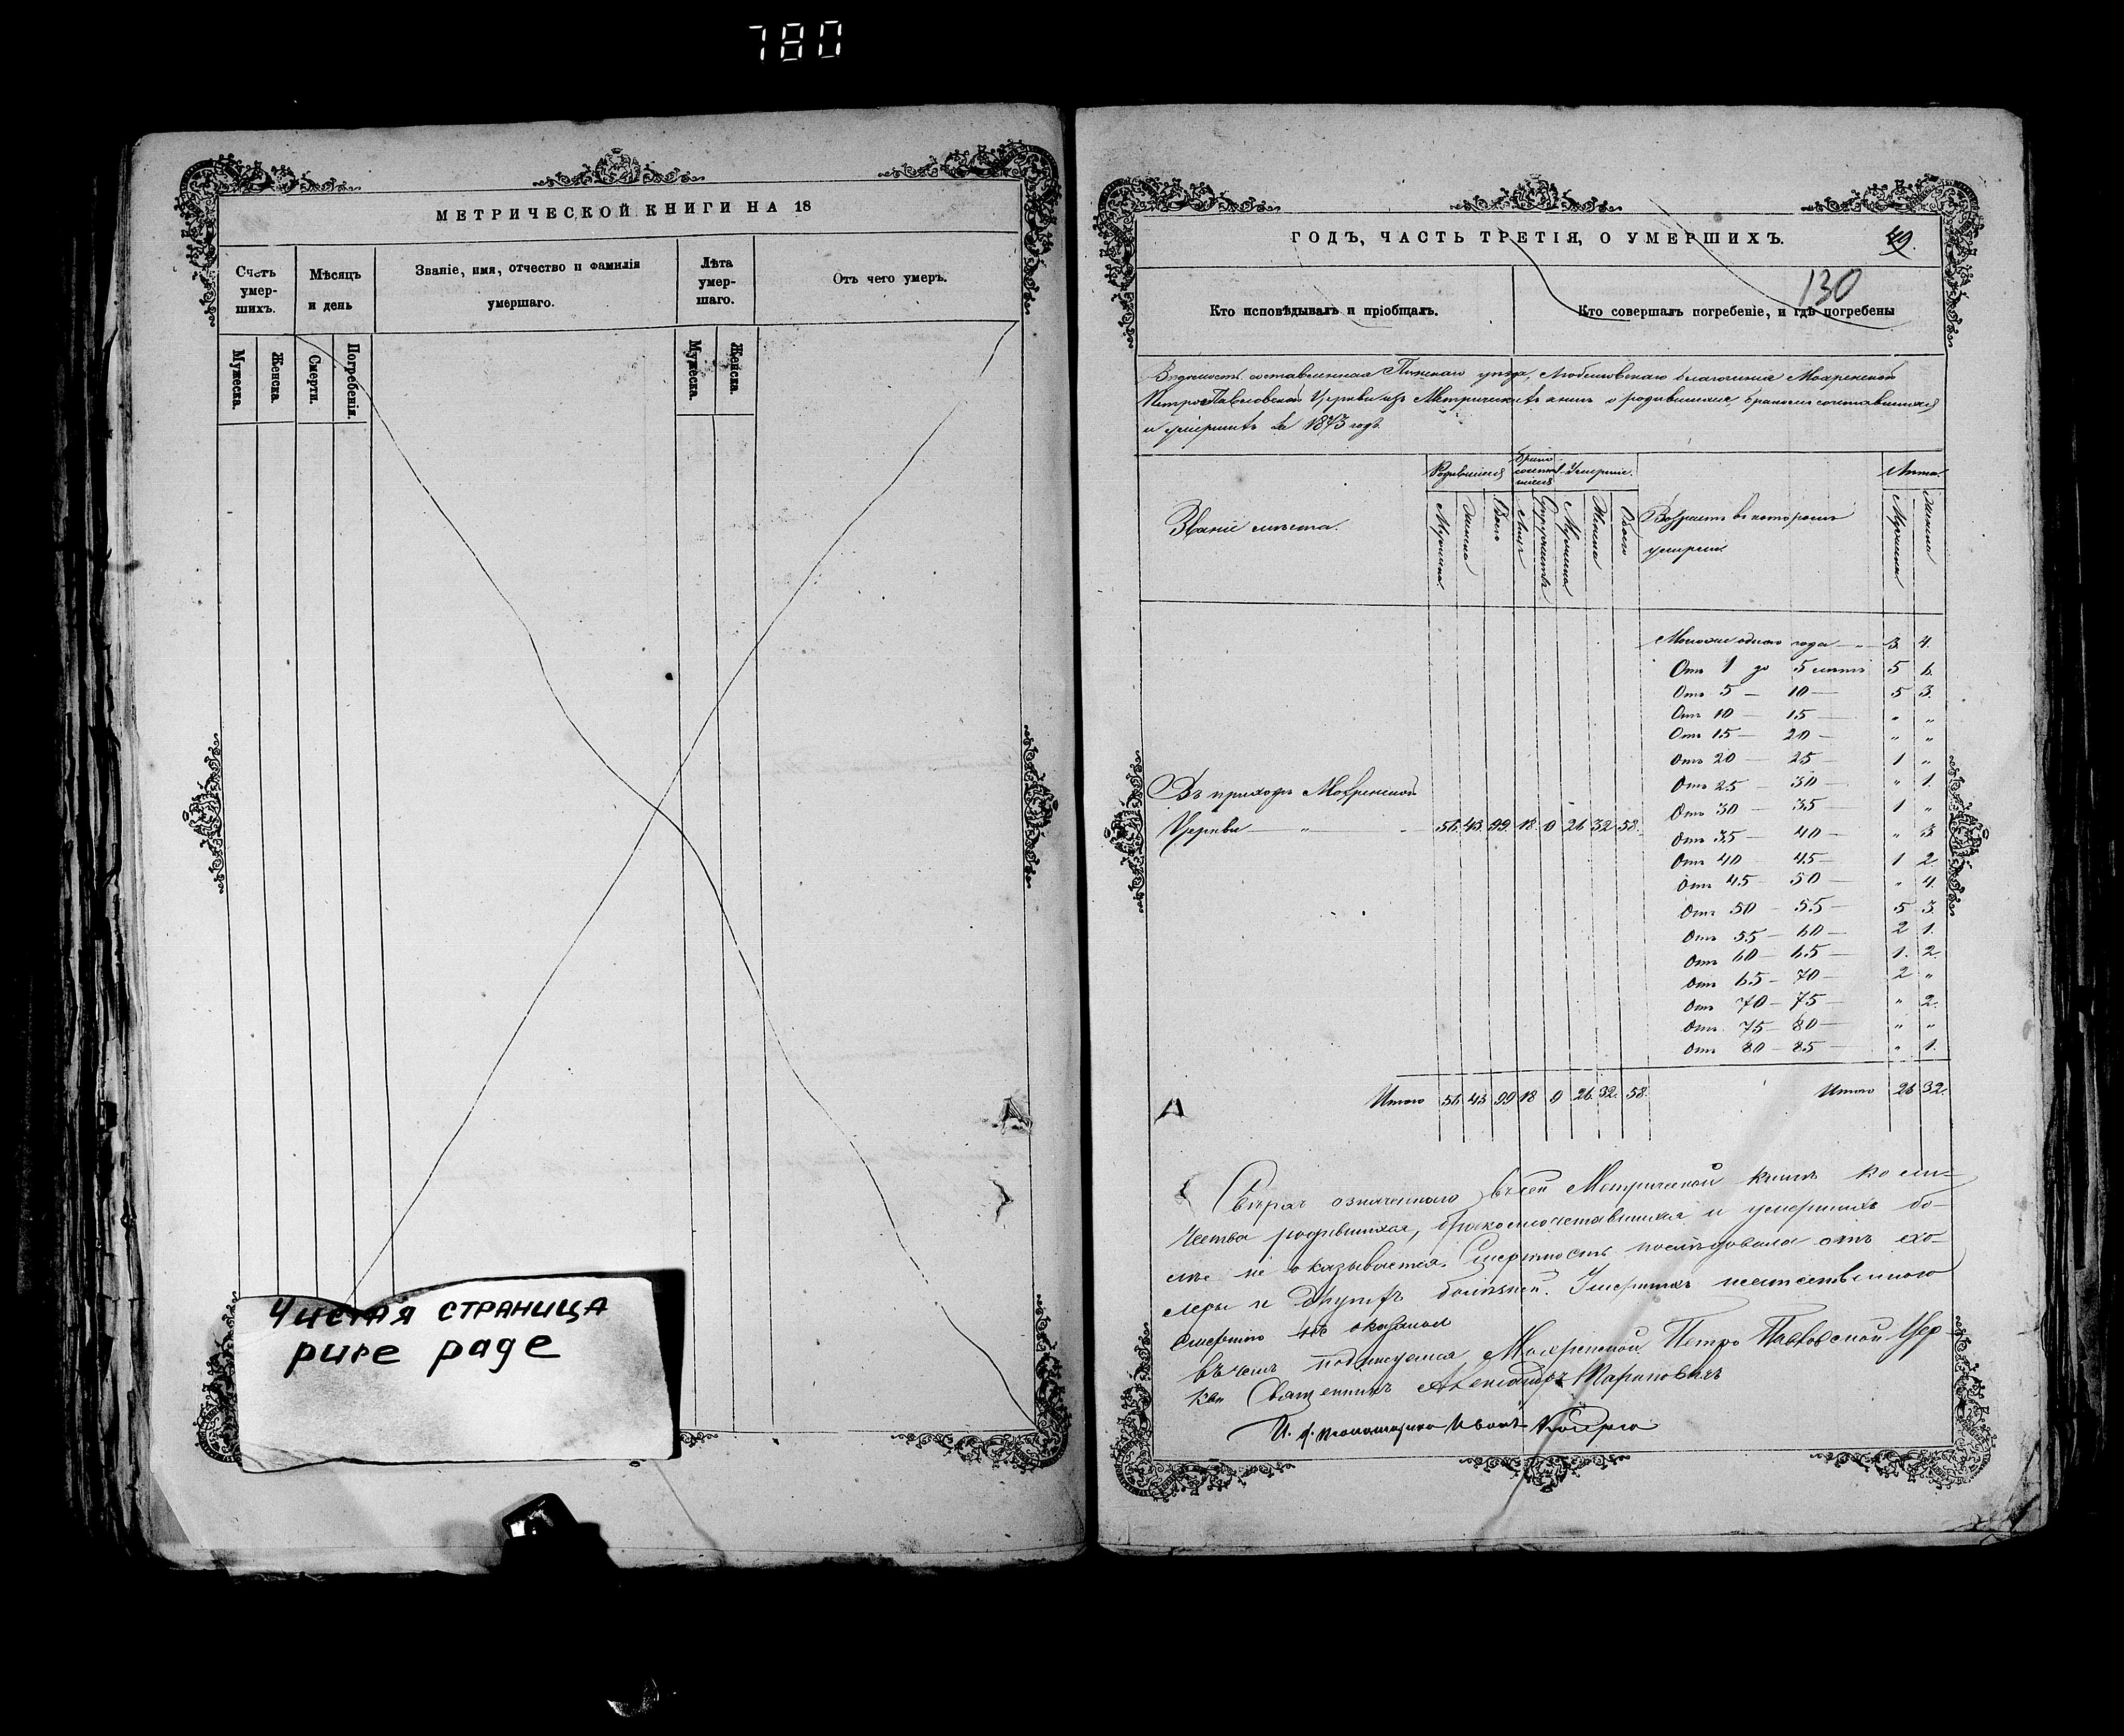 780
МЕТРИЧЕСКОЙ КНИГИ НА 18
Счетъ умер-шихъ.
Мѣсяцъ и день
Званіе, имя, отчество и фамилія умершаго.
Лѣта умер-шаго.
Отъ чего умеръ.
Мужеска.
Женска.
Смерти.
Погребенія.
Мужеска.
Женска.
Чистая страница
pure page
А
ГОДЪ, ЧАСТЬ ТРЕТІЯ, О УМЕРШИХЪ.
49.
130
Кто исповѣдывалъ и пріобщалъ.
Кто совершалъ погребеніе, и гдѣ погребены
Вѣдомость составленная Пинскаго уѣзда, Любешовскаго благочинія
Петро Павловской Церкви изъ Метрическихъ книгъ о родившихся, бракосочетавшихся
и умершихъ за 1873 годъ
Званіе мѣста.
Родившіеся
Умершіе.
Лѣта
Мужеска
Женска
Обоего
Мужеска
Женска
Обоего
Возрастъ въ которомъ
умерли
Мужеска
Женска
Моложе одного года — 3. 4.
Отъ 1 до 5 лѣтъ 5 6.
Отъ 5 — 10 — 5 3.
Отъ 10 — 15 — " "
Отъ 15 — 20 — " "
Отъ 20 — 25 — 1 "
Отъ 25 — 30 — " 1.
Отъ 30 — 35 — 1 "
Отъ 35 — 40 — " 3
Отъ 40 — 45 — 1 2
Отъ 45 — 50 — " 4.
Отъ 50 — 55 — 5 3.
Отъ 55 — 60 — 2 1.
Отъ 60 — 65 — 1. 2.
Отъ 65 — 70 — 2 "
Отъ 70 — 75 — " 2.
Отъ 75 — 80 — " "
Отъ 80 — 85 — " 1.
Въ приходѣ
Церкви — " — 56. 43. 99. 18. 0 26 32. 58.
Итого 56. 43 99 18 0 26. 32. 58.
Итого 26 32.
А
означеннаго въ сей Метрической книгѣ коли-
чества родившихся, бракосочетавшихся и умершихъ бо-
лѣе не оказывается. Смертность послѣдовала отъ хо-
леры и другихъ болѣзней. Умершихъ неестественною
смертію не оказалось
въ чемъ подписуемся Петро Павловской Цер-
кви Священникъ Александръ
И. д. пономаря Иванъ